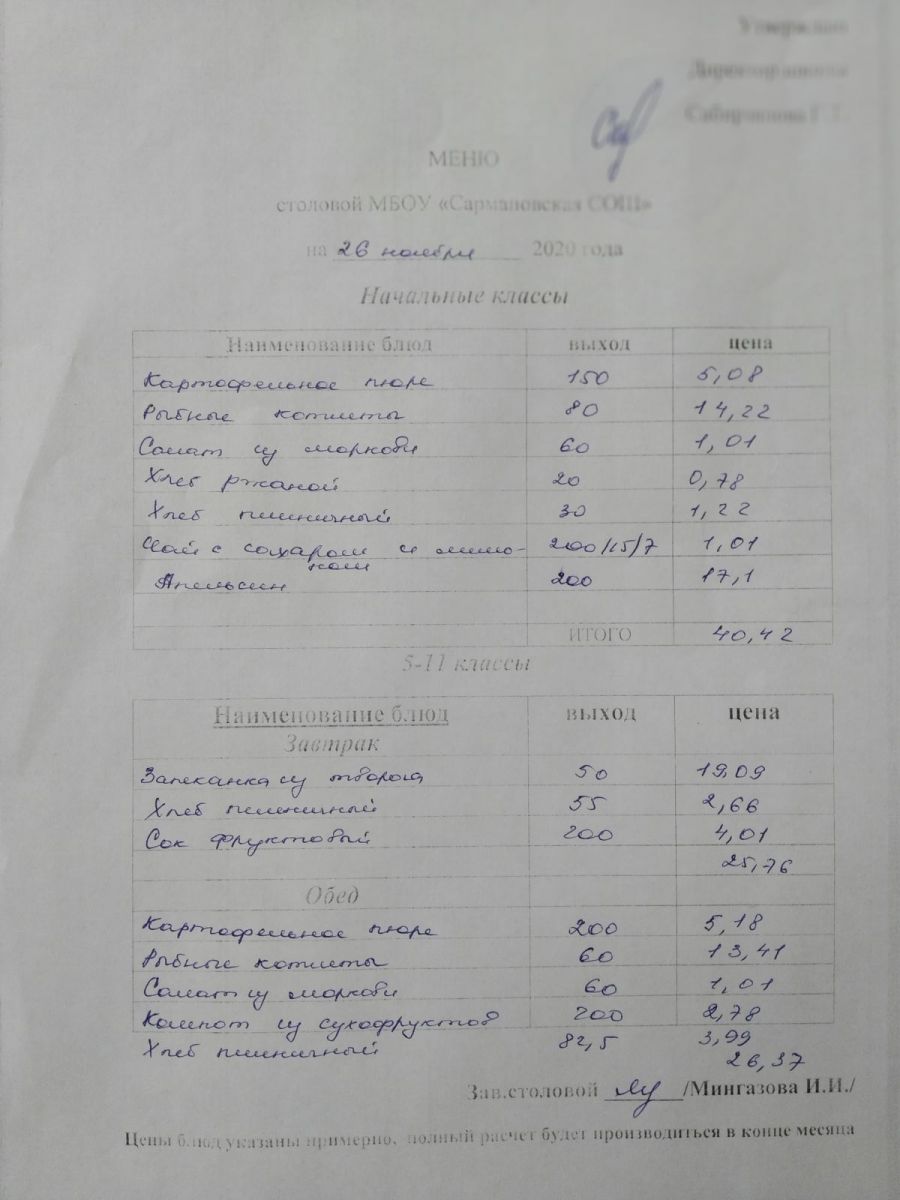 Утверждаю
Директор школы
МЕНЮ
столовой МБОУ «Сармановская СОШ»
на 26 ноября 2020 года
Начальные классы
Наименование блюд выход цена
Картофельное пюре 150 5,08
Рыбные котлеты 80 14,22
Салат из моркови 60 1,01
Хлеб ржаной 20 0,78
Хлеб пшеничный 30 1,22
Чай с сахаром и лимо- 200/15/7 1,01
ном
Апельсин 200 17,1
ИТОГО 40,42
5-11 классы
Наименование блюд выход цена
Завтрак
Запеканка из творога 50 19,09
Хлеб пшеничный 55 2,66
Сок фруктовый 200 4,01
25,76
Обед
Картофельное пюре 200 5,18
Рыбные котлеты 60 13,41
Салат из моркови 60 1,01
Компот из сухофруктов 200 2,78
Хлеб пшеничный 82,5 3,99
26,37
Зав.столовой /Мингазова И.И./
Цены блюд указаны примерно, полный расчет будет производиться в конце месяца